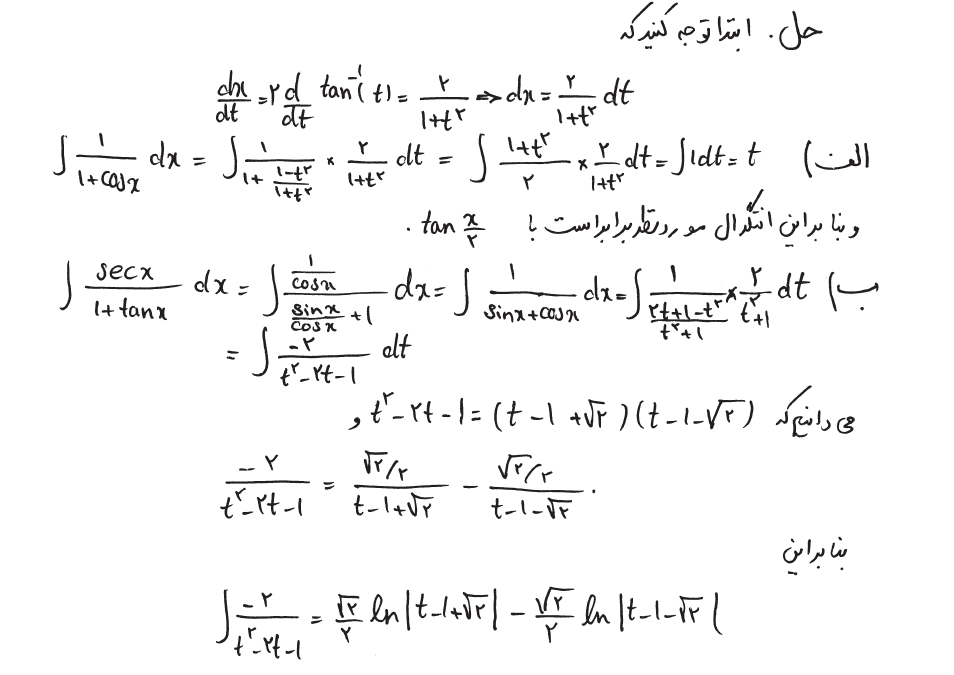 حل. ابتدا توجه کنید که
dx/dt = ۲ d/dt tan⁻¹(t) = ۲/(۱+t^۲) ⇒ dx = ۲/(۱+t^۲) dt
الف) ∫ ۱/(۱+cosx) dx = ∫ ۱/(۱+(۱-t^۲)/(۱+t^۲)) × ۲/(۱+t^۲) dt = ∫ (۱+t^۲)/۲ × ۲/(۱+t^۲) dt = ∫۱dt = t
و بنا براین انتگرال مورد نظر برابر است با tan x/۲ .
ب) ∫ secx/(۱+tanx) dx = ∫ (۱/cosx)/(sinx/cosx +۱) dx = ∫ ۱/(sinx+cosx) dx = ∫ ۱/((۲t+۱-t^۲)/(t^۲+۱)) × ۲/(t^۲+۱) dt
= ∫ -۲/(t^۲-۲t-۱) dt
می دانیم که t^۲-۲t-۱ = (t-۱+√۲)(t-۱-√۲) و
-۲/(t^۲-۲t-۱) = (√۲/۲)/(t-۱+√۲) - (√۲/۲)/(t-۱-√۲) .
بنا براین
∫ -۲/(t^۲-۲t-۱) = √۲/۲ ln|t-۱+√۲| - √۲/۲ ln|t-۱-√۲|